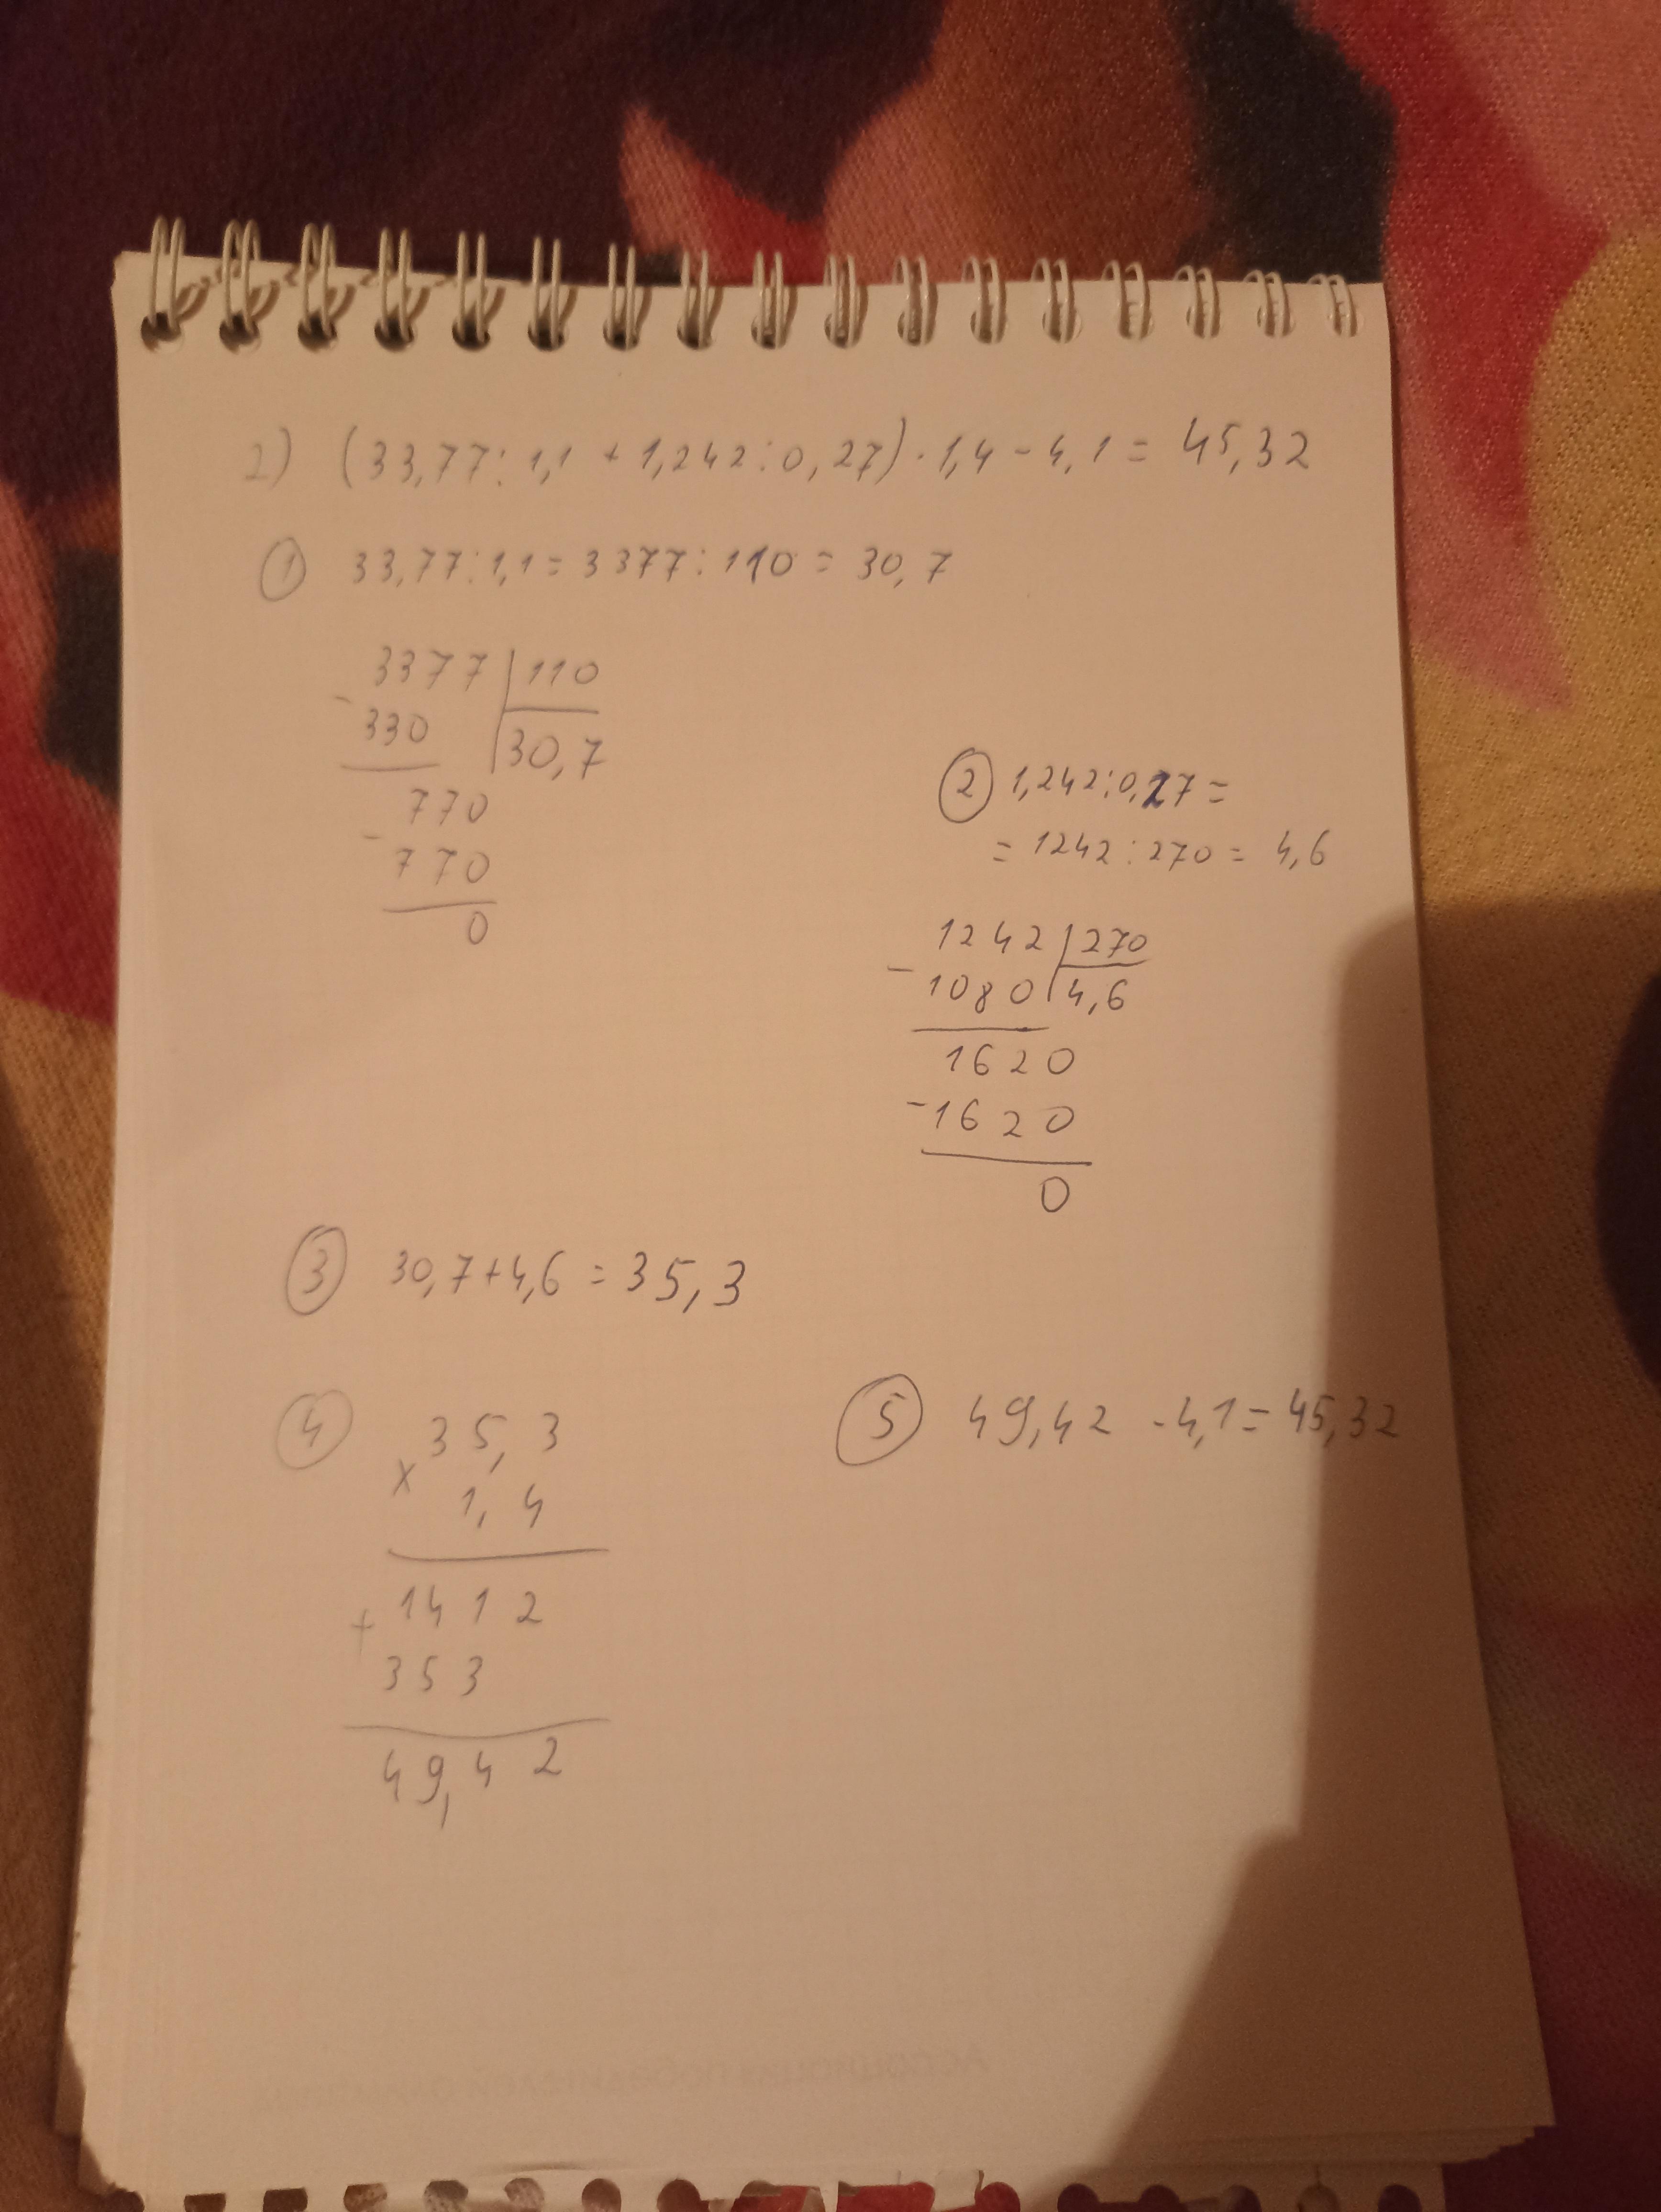 2) (33,77:1,1 + 1,242:0,27)·1,4-4,1= 45,32
① 33,77:1,1=3377:110=30,7
3377 110
- 330 30,7
770
- 770
0
② 1,242:0,27=
= 1242:270= 4,6
1242 270
- 1080 4,6
1620
-1620
0
③ 30,7+4,6=35,3
④ 35,3
x 1,4
1412
+ 353
49,42
⑤ 49,42 -4,1=45,32